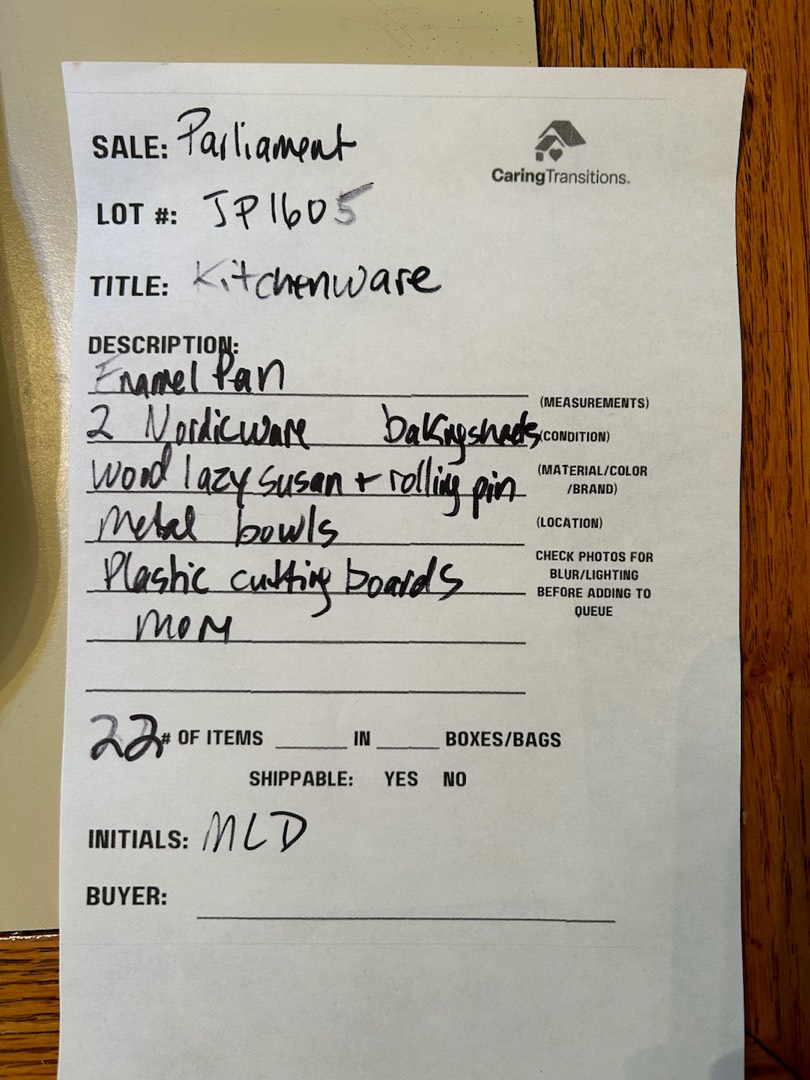 SALE: Parliament
CaringTransitions.
LOT #: JP1605
TITLE: Kitchenware
DESCRIPTION:
Enamel Pan
(MEASUREMENTS)
2 Nordicware baking sheets
(CONDITION)
Wood lazy susan + rolling pin
(MATERIAL/COLOR
/BRAND)
Metal bowls
(LOCATION)
Plastic cutting boards
CHECK PHOTOS FOR
BLUR/LIGHTING
BEFORE ADDING TO
QUEUE
22 # OF ITEMS ____ IN ____ BOXES/BAGS
SHIPPABLE: YES NO
INITIALS: MLD
BUYER: